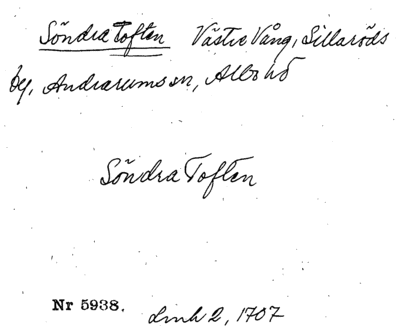 Söndra Toften Västre Vång, Sillaröds
by, Andrarums sn, Albo hd
Söndra Toften
Nr 5938.
Lmh 2, 1707